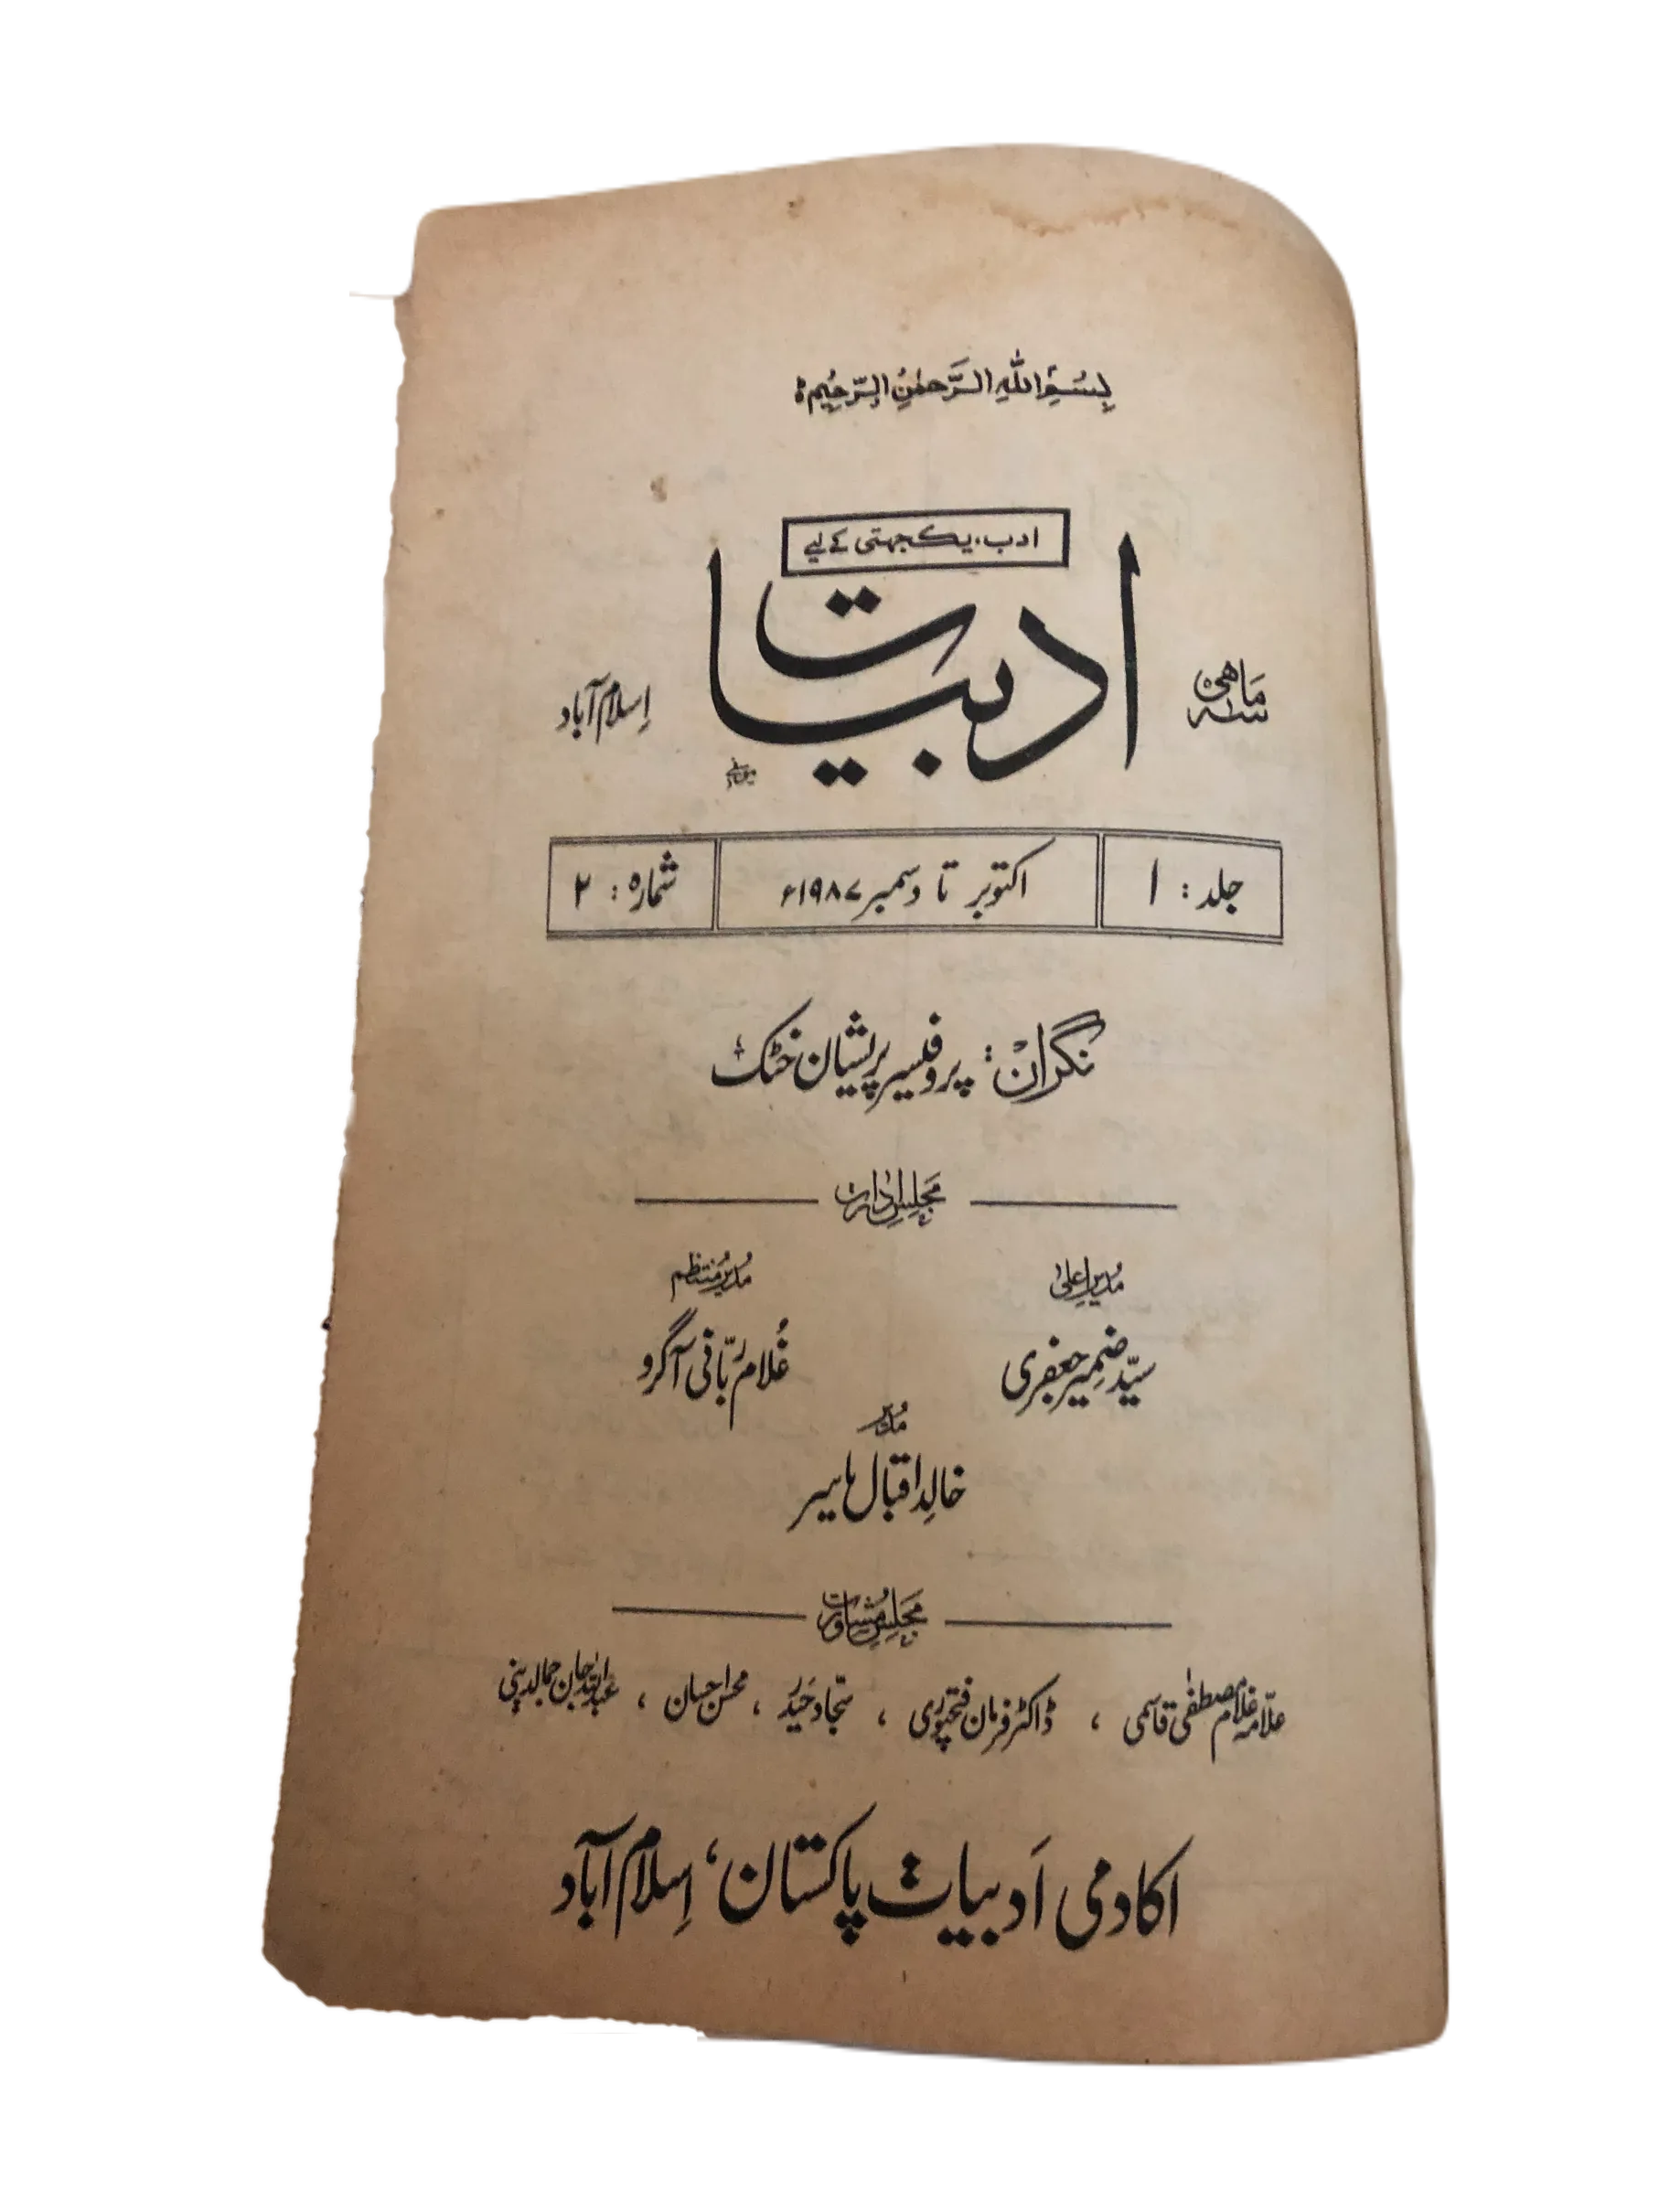 بِسْمِ اللهِ الرَّحْمٰنِ الرَّحِیْمِ ۰
ادب، یکجہتی کے لیے
سہ ماہی ادبیات اِسلام آباد
جلد: ۱ اکتوبر تا دسمبر ۱۹۸۷ء شمارہ: ۲
نگران: پروفیسر پریشان خٹک
مجلسِ ادارت
مُدیرِ اعلیٰ مُدیر مُنتظم
سیّد ضمیر جعفری غُلام ربّانی آگرو
مُدیر
خالد اقبال یاسر
مجلسِ مُشاورت
علّامہ غلام مصطفٰی قاسمی ، ڈاکٹر فرمان فتحپوری ، سجّاد حیدر ، محسن احسان ، عبداللہ جان جمالدینی
اکادمی اَدبیات پاکستان، اِسلام آباد